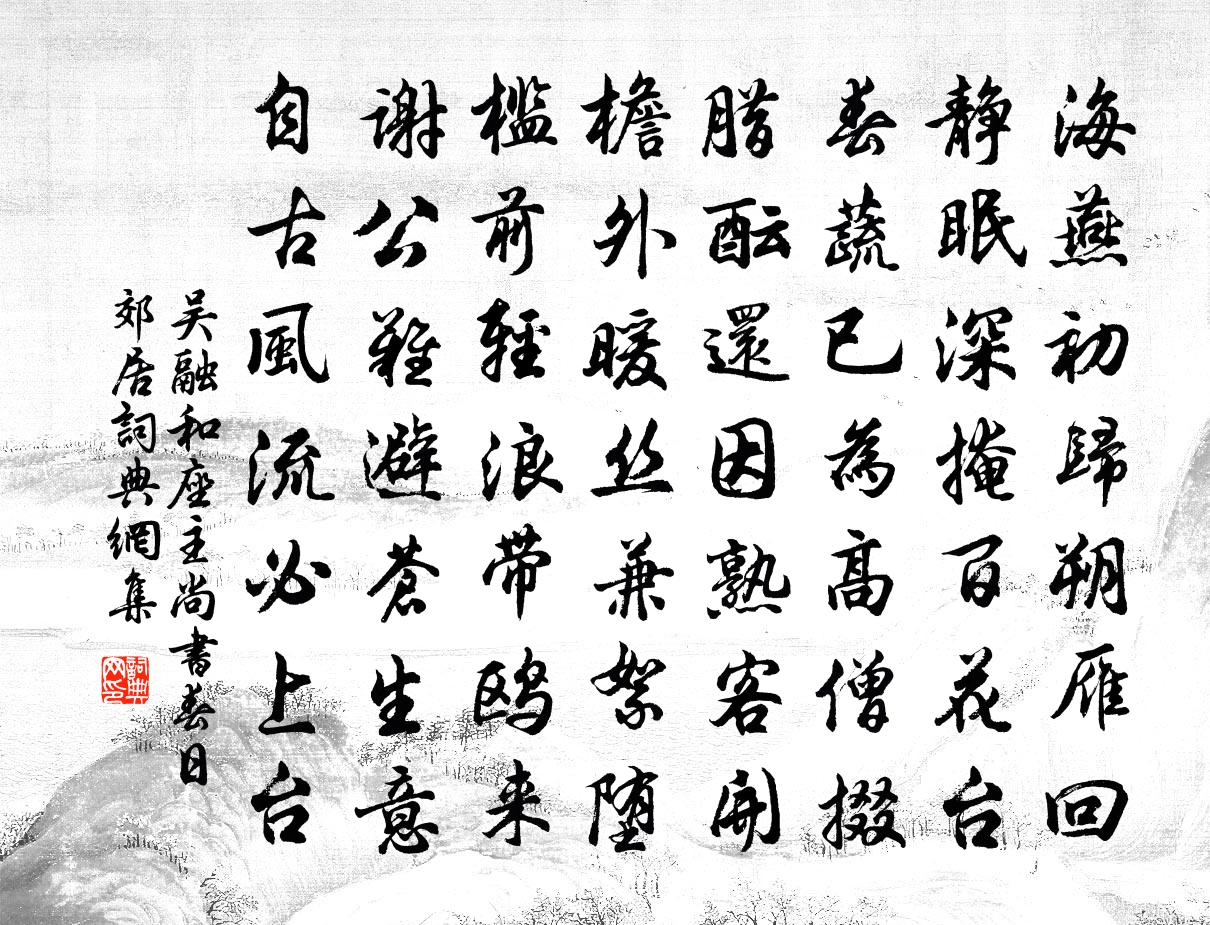 海燕初歸朔雁回
静眠深掩百花台
春蔬已為高僧掇
腊酝還因熟客開
檐外暖丝兼絮堕
槛前輕浪带鸥来
谢公難避蒼生意
自古風流必上台
吴融和座主尚書春日
郊居詞典網集
詞典网印